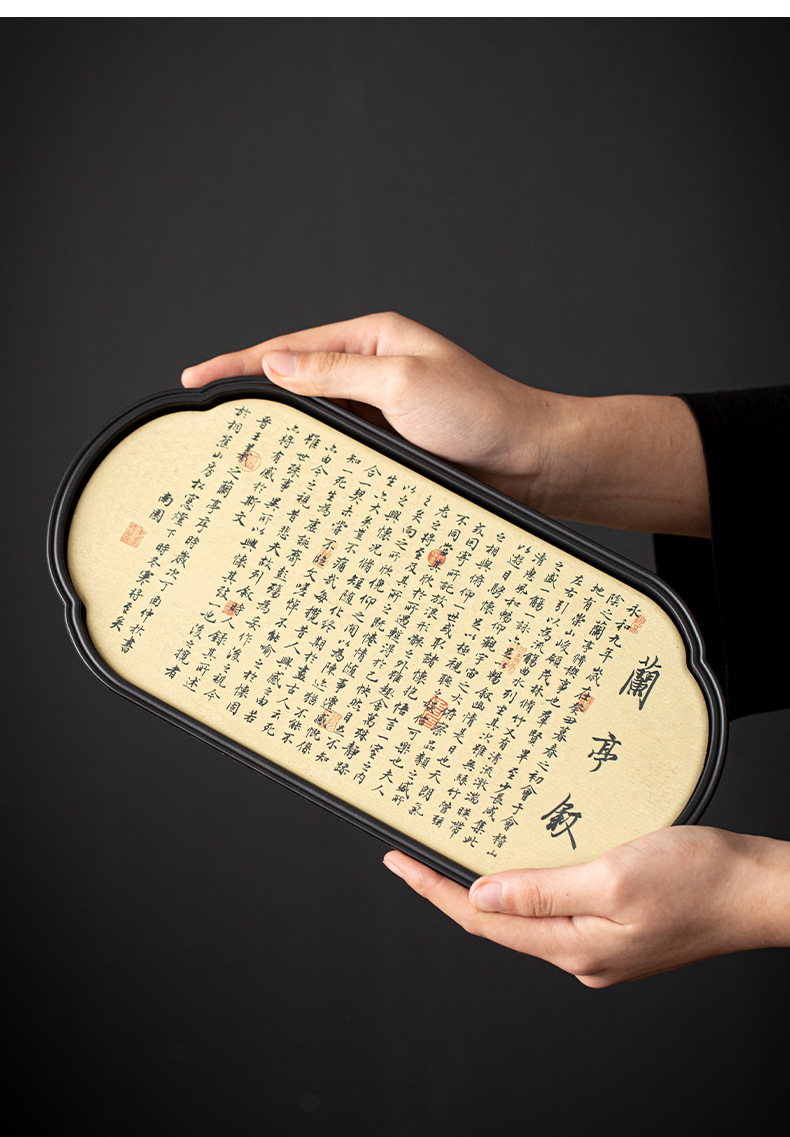 蘭亭叙
永和九年歲在癸丑暮春之初會于會稽山
陰之蘭亭脩禊事也群賢畢至少長咸集此
地有崇山峻領茂林脩竹又有清流激湍暎帶
左右引以為流觴曲水列坐其次雖無絲竹管弦
之盛一觴一詠亦足以暢叙幽情是日也天朗氣
清惠風和暢仰觀宇宙之大俯察品類之盛所
以遊目騁懷足以極視聽之娛信可樂也夫人
之相與俯仰一世或取諸懷抱悟言一室之內
或因寄所託放浪形骸之外雖趣舍萬殊靜躁
不同當其欣於所遇暫得於己怏然自足不知
老之將至及其所之既惓情隨事遷感慨係
之矣向之所欣俛仰之間以為陳迹猶不能不
以之興懷況脩短隨化終期於盡古人云死
生亦大矣豈不痛哉每攬昔人興感之由若
合一契未嘗不臨文嗟悼不能喻之於懷固
知一死生為虛誕齊彭殤為妄作後之視今
亦由今之視昔悲夫故列叙時人錄其所述
雖世殊事異所以興懷其致一也後之攬者
亦將有感於斯文
晉王羲之蘭亭序時歲次丁酉仲秋書
於桐蕉山房松窓燈下時冬寒將至矣
南園